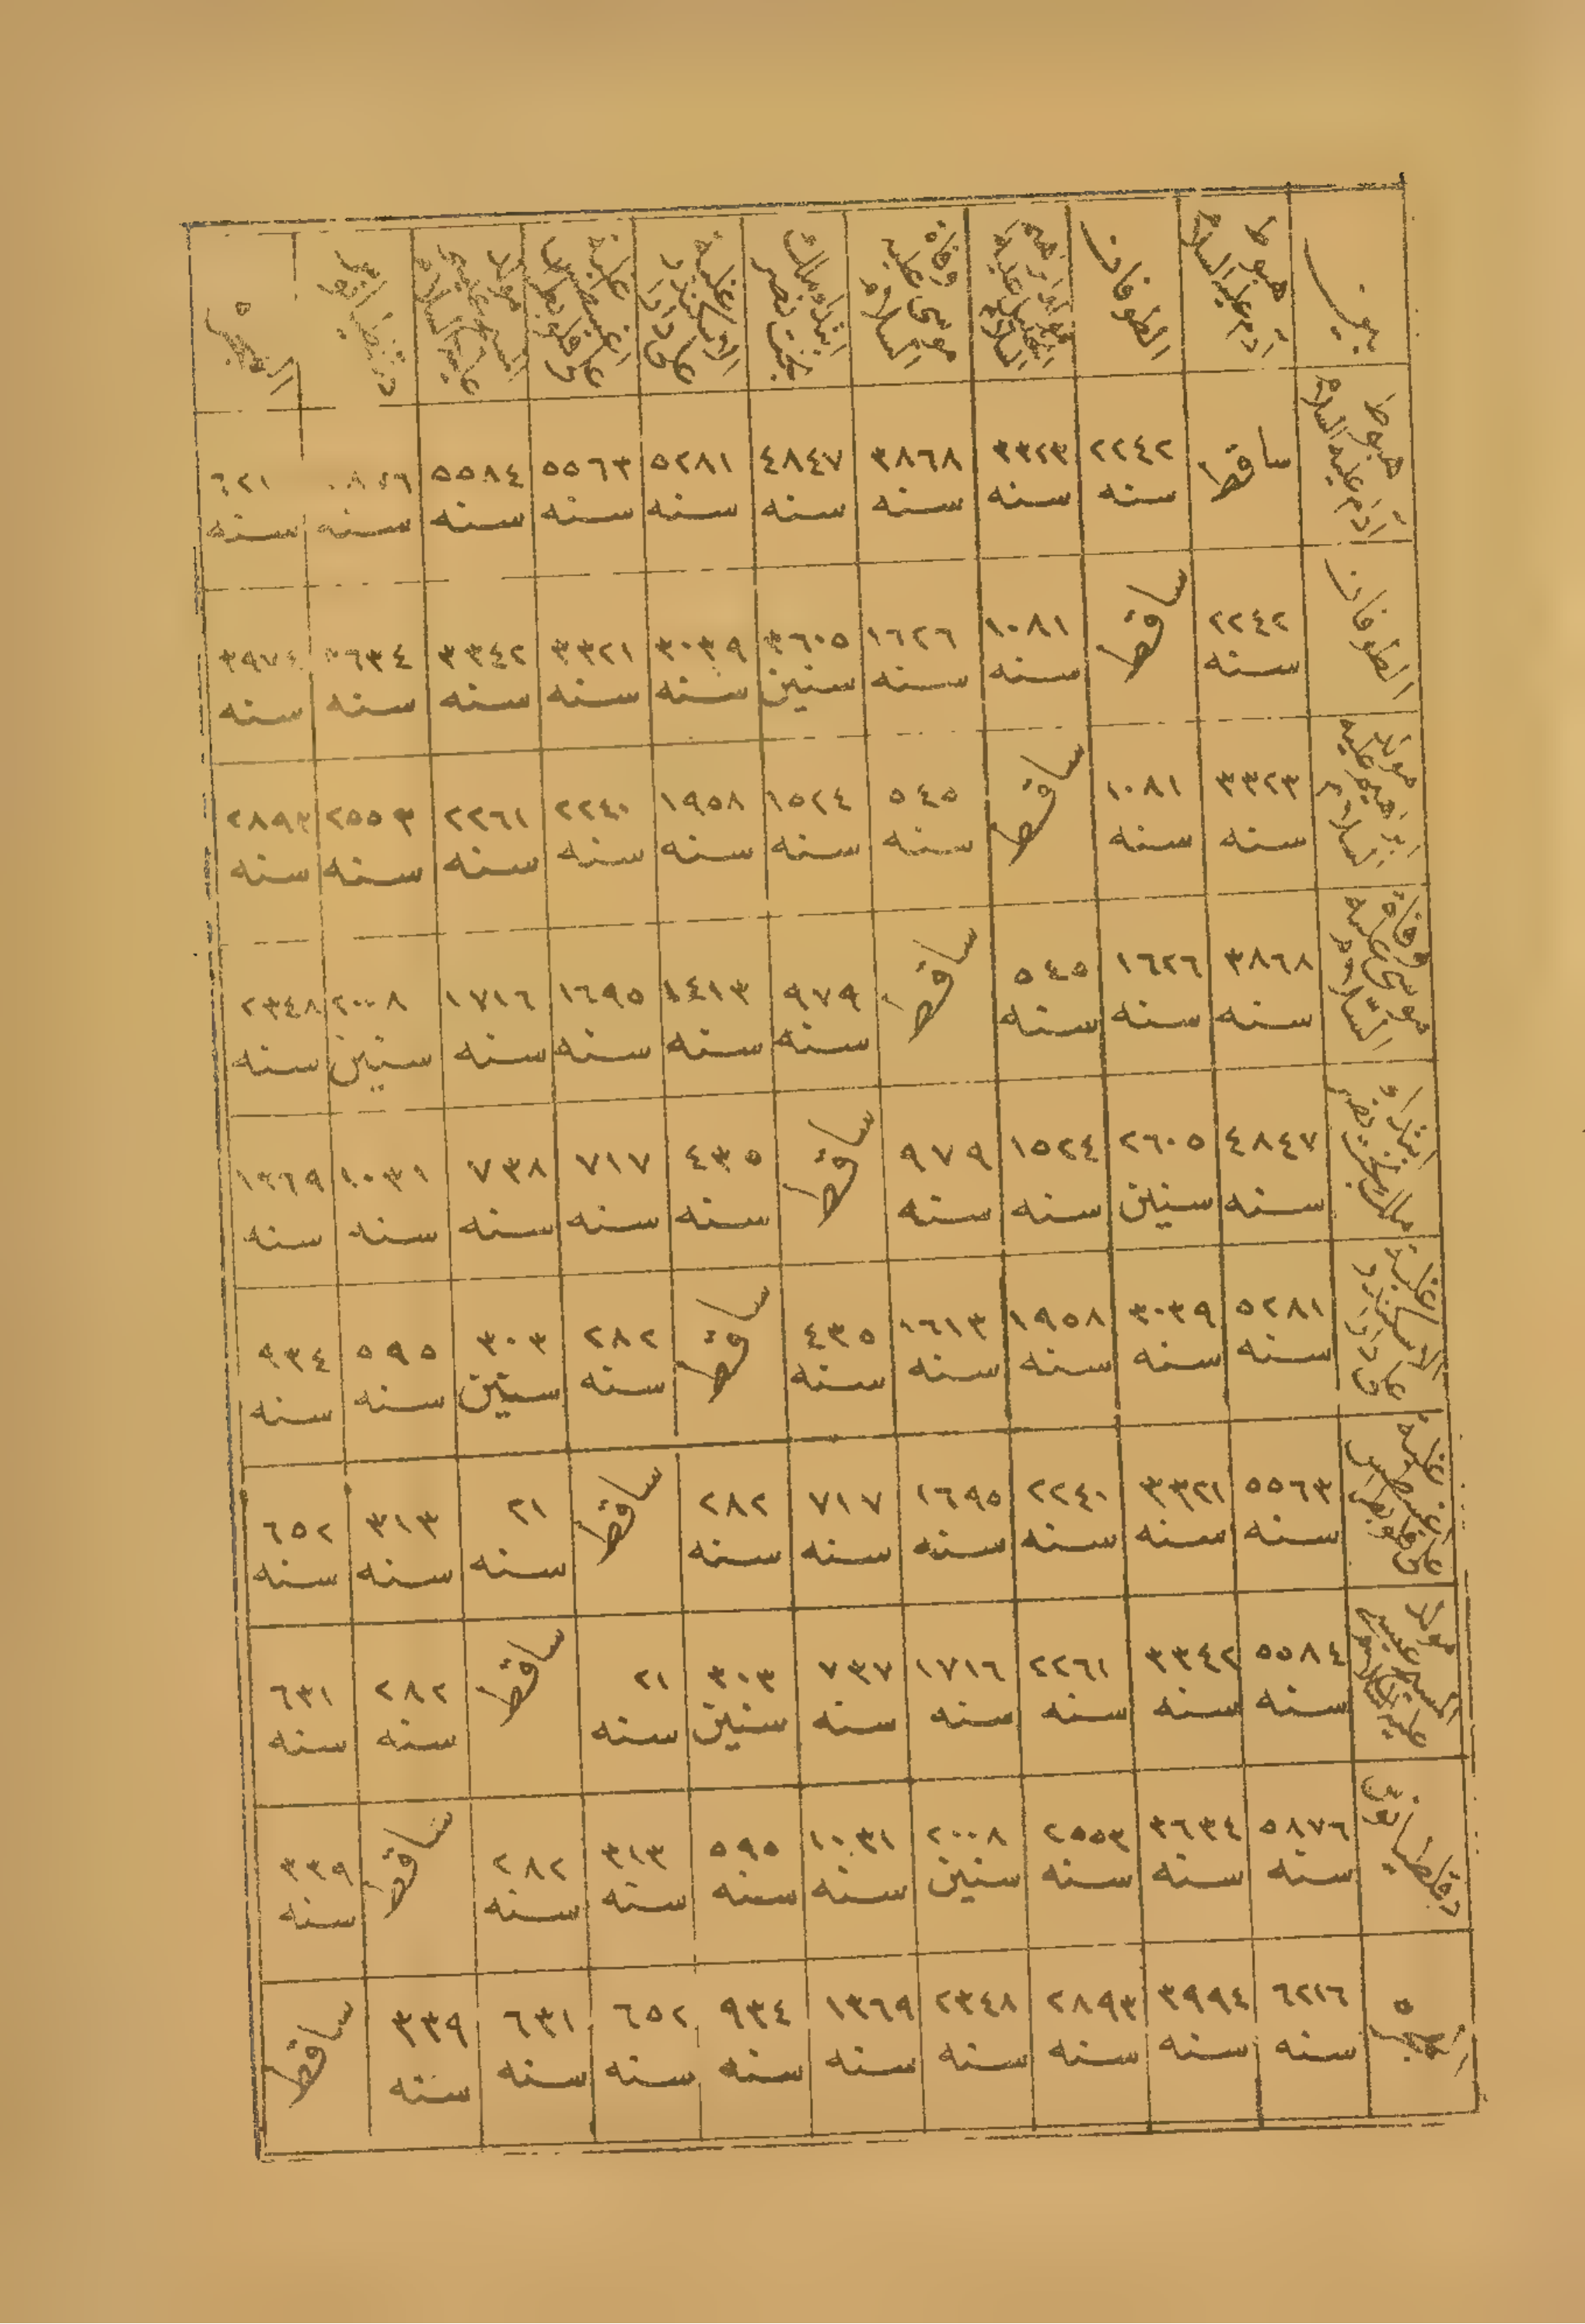 بين هبوط آدم عليه السلام الطوفان مولد ابراهيم الخليل عليه السلام وفاة موسى عليه السلام ابتداء ملك بخت نصر غلبة الاسكندر على دارا غلبة اغسطس على قلوبطرا مولد المسيح عيسى عليه السلام دقلطيانوس الهجرة
هبوط آدم عليه السلام ساقط ٢٢٤٢ سنه ٣٣٢٣ سنه ٣٨٦٨ سنه ٤٨٤٧ سنه ٥٢٨١ سنه ٥٥٦٣ سنه ٥٥٨٤ سنه سنه ٦٢١ سنه
الطوفان ٢٢٤٢ سنه ساقط ١٠٨١ سنه ١٦٢٦ سنه ٣٦٠٥ سنين ٣٠٣٩ سنه ٣٣٢١ سنه ٣٣٤٢ سنه ٣٦٣٤ سنه ٣٩٧٤ سنه
مولد ابراهيم عليه السلام ٣٣٢٣ سنه ١٠٨١ سنه ساقط ٥٤٥ سنه ١٥٢٤ سنه ١٩٥٨ سنه ٢٢٤٠ سنه ٢٢٦١ سنه ٢٥٥٣ سنه ٢٨٩٣ سنه
وفاة موسى عليه السلام ٣٨٦٨ سنه ١٦٢٦ سنه ٥٤٥ سنه ساقط ٩٧٩ سنه ١٤١٣ سنه ١٦٩٥ سنه ١٧١٦ سنه ٢٠٠٨ سنين ٢٣٤٨ سنه
ابتداء ملك بخت نصر ٤٨٤٧ سنه ٢٦٠٥ سنين ١٥٢٤ سنه ٩٧٩ سنه ساقط ٤٣٥ سنه ٧١٧ سنه ٧٣٨ سنه ١٠٣١ سنه ١٣٦٩ سنه
غلبة الاسكندر على دارا ٥٢٨١ سنه ٣٠٣٩ سنه ١٩٥٨ سنه ١٦١٣ سنه ٤٣٥ سنه ساقط ٢٨٢ سنه ٣٠٣ سنين ٥٩٥ سنه ٩٣٤ سنه
غلبة اغسطس على قلوبطرا ٥٥٦٣ سنه ٣٣٢١ سنه ٢٢٤٠ سنه ١٦٩٥ سنه ٧١٧ سنه ٢٨٢ سنه ساقط ٢١ سنه ٣١٣ سنه ٦٥٢ سنه
مولد المسيح عيسى عليه السلام ٥٥٨٤ سنه ٣٣٤٢ سنه ٢٢٦١ سنه ١٧١٦ سنه ٧٣٧ سنه ٣٠٣ سنين ٢١ سنه ساقط ٢٨٢ سنه ٦٣١ سنه
دقلطيانوس ٥٨٧٦ سنه ٣٦٣٤ سنه ٢٥٥٣ سنه ٢٠٠٨ سنين ١٠٣١ سنه ٥٩٥ سنه ٣١٣ سنه ٢٨٢ سنه ساقط ٣٣٩ سنه
الهجرة ٦٢١٦ سنه ٣٩٩٤ سنه ٢٨٩٣ سنه ٢٣٤٨ سنه ١٣٦٩ سنه ٩٣٤ سنه ٦٥٢ سنه ٦٣١ سنه ٣٣٩ سنه ساقط